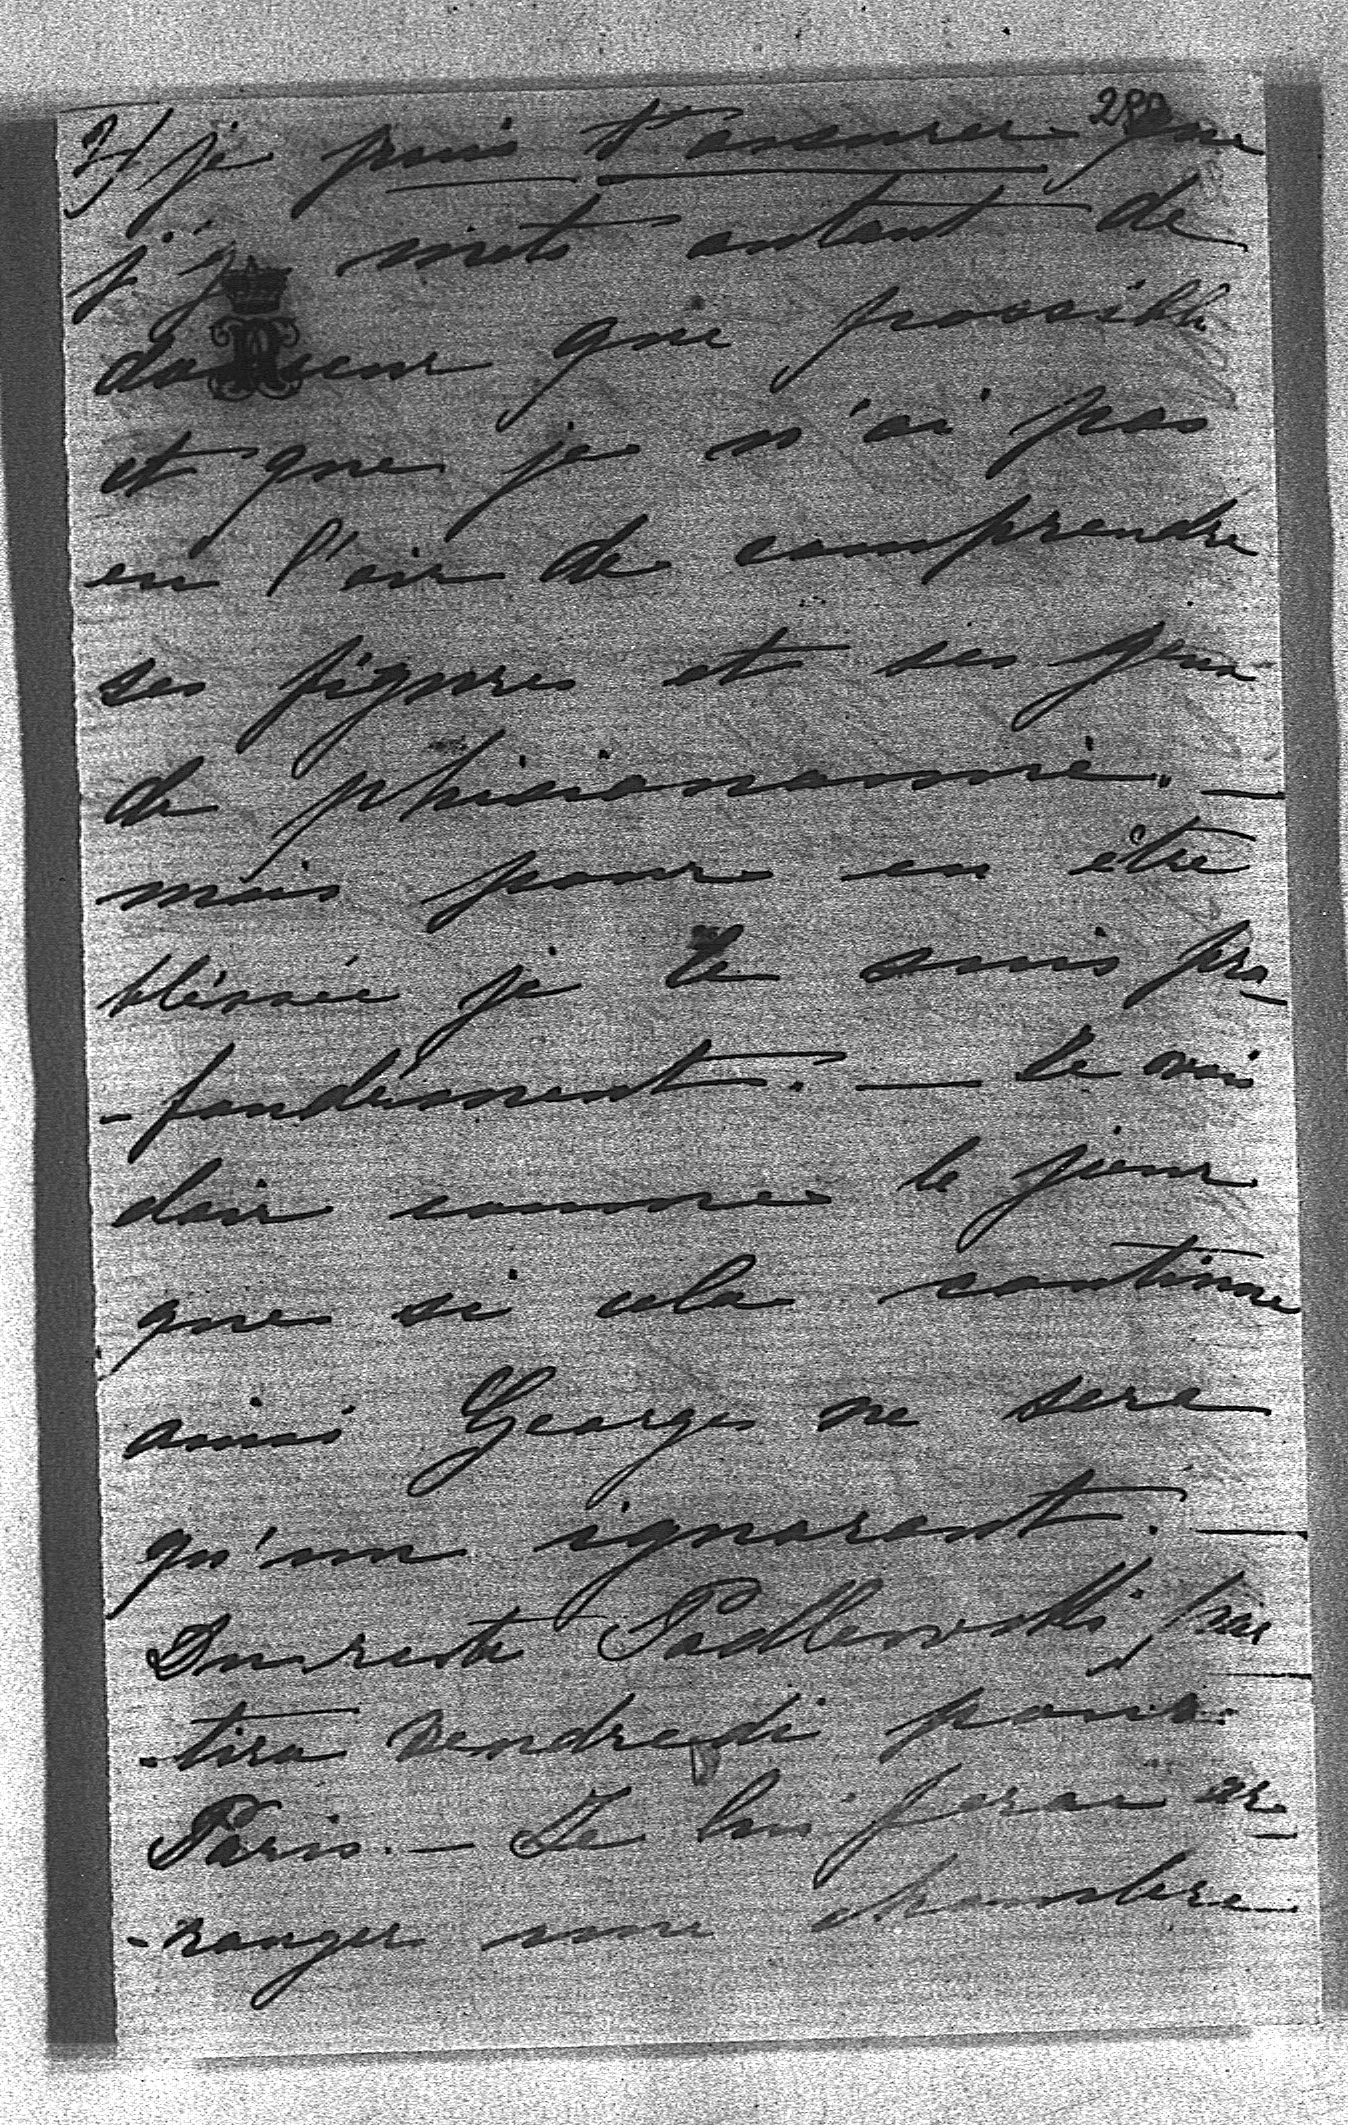 3/ je puis t'assurer que
j'y mets autant de
douceur que possible
et que je n'ai pas
eu l'air de comprendre
ses figures et ses jeux
de phisionomie. —
mais pour en être
bléssée je le suis pro-
-fondément. — Je vois
clair comme le jour
que si cela continue
ainsi Georges ne sera
qu'un ignorant. —
Du reste Padlewski par-
-tira vendredi pour
Paris. — Je lui ferai ar-
-ranger une chambre